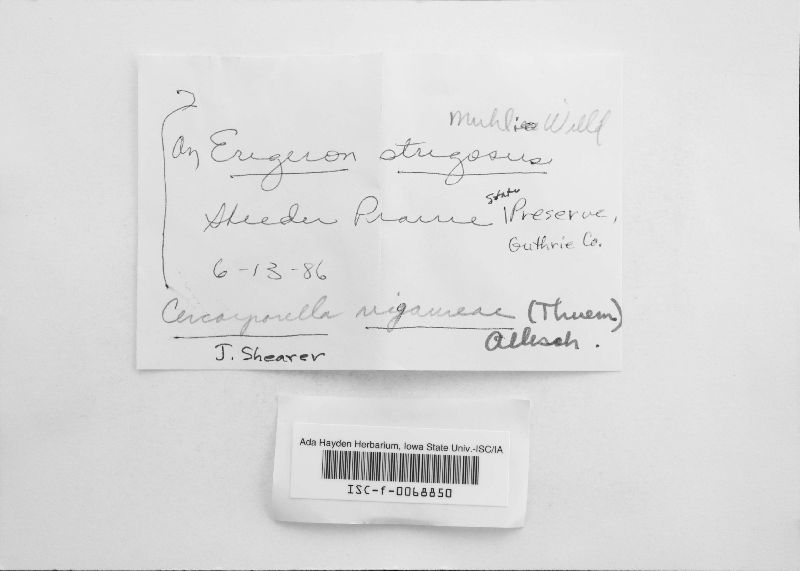 ?
Muhl ex Willd
on Erigeron strigosus
Sheeder Prairie State Preserve,
Guthrie Co.
6-13-86
Cercosporella virgaureae (Thuem)
Allesch.
J. Shearer
Ada Hayden Herbarium, Iowa State Univ.-ISC/IA
ISC-f-0068850